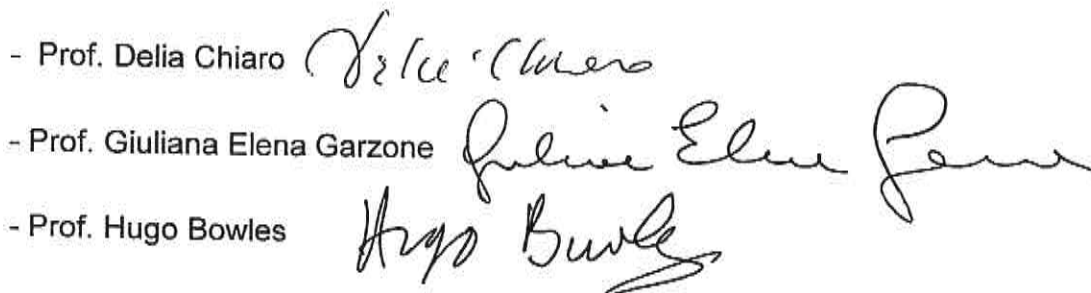 - Prof. Delia Chiaro Delia Chiaro
- Prof. Giuliana Elena Garzone Giuliana Elena Garzone
- Prof. Hugo Bowles Hugo Bowles